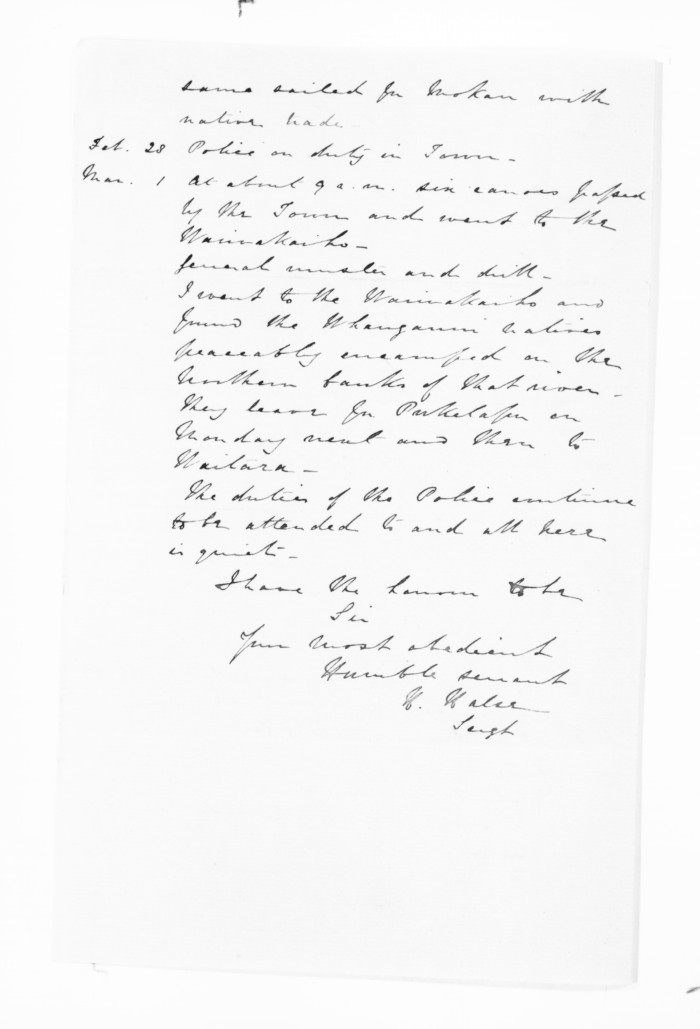 same sailed for Mokau with
native trade
Feb. 28 Police on duty in Town -
Mar. 1 At about 9 a.m. six canoes passed
by the Town and went to the
Waiwakaiho -
General muster and drill -
I went to the Waiwakaiho and
found the Whanganui natives
peaceably encamped on the
Northern banks of that river -
They leave for Puketapu on
Monday next and then to
Waitara -
The duties of the Police continue
to be attended to and all here
is quiet -
I have the honour to be
Sir
Your most obedient
Humble servant
H. Halse
Sergt